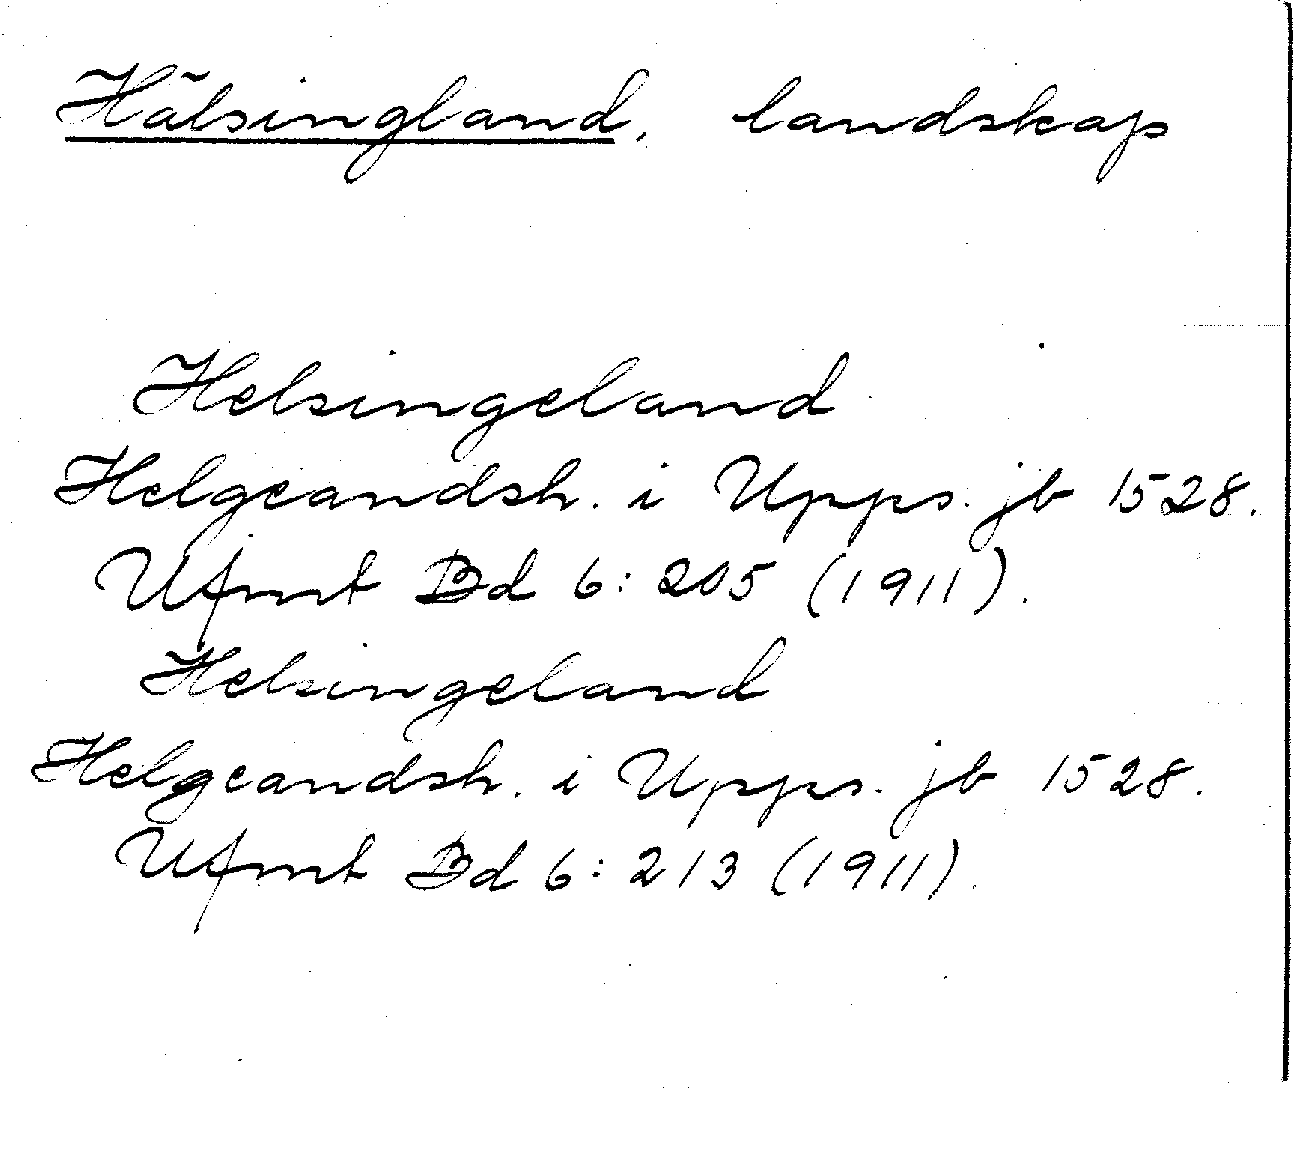 Hälsingland, landskap
Helsingeland
Helgeandsh. i Upps. jb 1528.
Ufmt Bd 6: 205 (1911).
Helsingeland
Helgeandsh. i Upps. jb 1528.
Ufmt Bd 6: 213 (1911).